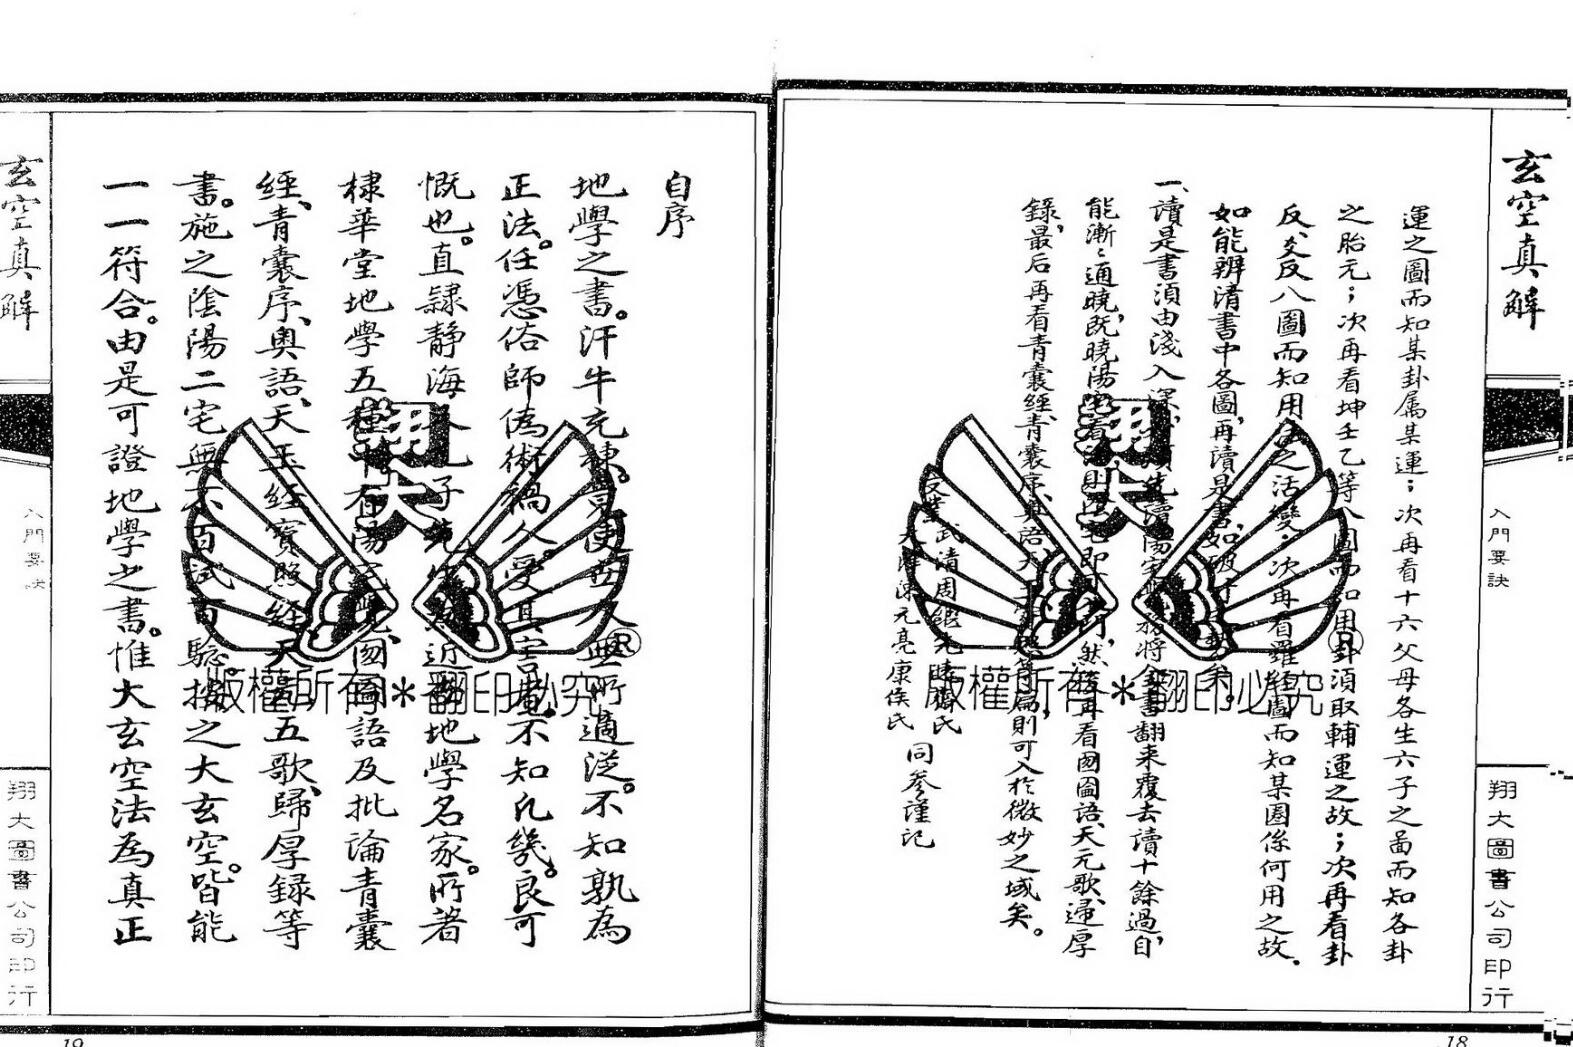 玄空真解
入門要訣
翔大圖書公司印行
運之圖而知某卦属某運；次再看十六父母各生六子之啚而知各卦
之胎元；次再看坤壬乙等八圖而知用卦須取輔運之故；次再看卦
反、爻反八圖而知用法之活變，次再看羅經圖而知某圈係何用之故.
如能辨清書中各圖，再讀是書，如破竹
矣。
一、讀是書須由淺入深，須先讀陽宅
務將全書翻来覆去讀十餘過，自
能漸〻通曉，既曉陽宅看法則陰宅即可入門，然後再看國圖語、天元歌、歸厚
錄，最后再看青囊經、青囊序、奥語、天玉、寶照等篇，則可入於微妙之域矣。
武清周繼先
氏
陳元亮康侯氏
同參謹记
18
自序
地學之書。汗牛充棟。竟使世人無所適従。不知孰為
正法。任憑俗師偽術禍人。受其害者。不知凡幾。良可
慨也。直隸静海
子先生
近
地學名家。所著
棣華堂地學五種
有陽宅
圖語及批論青囊
經、青囊序、奥語、天玉經、寳照經、天元五歌、歸厚録等
書。施之陰陽二宅無不百試百驗。按之大玄空。皆能
一一符合。由是可證地學之書。惟大玄空法為真正
玄空真解
入門要訣
翔大圖書公司印行
19
翔大
版權所有＊翻印必究
翔大
版權所有＊翻印必究